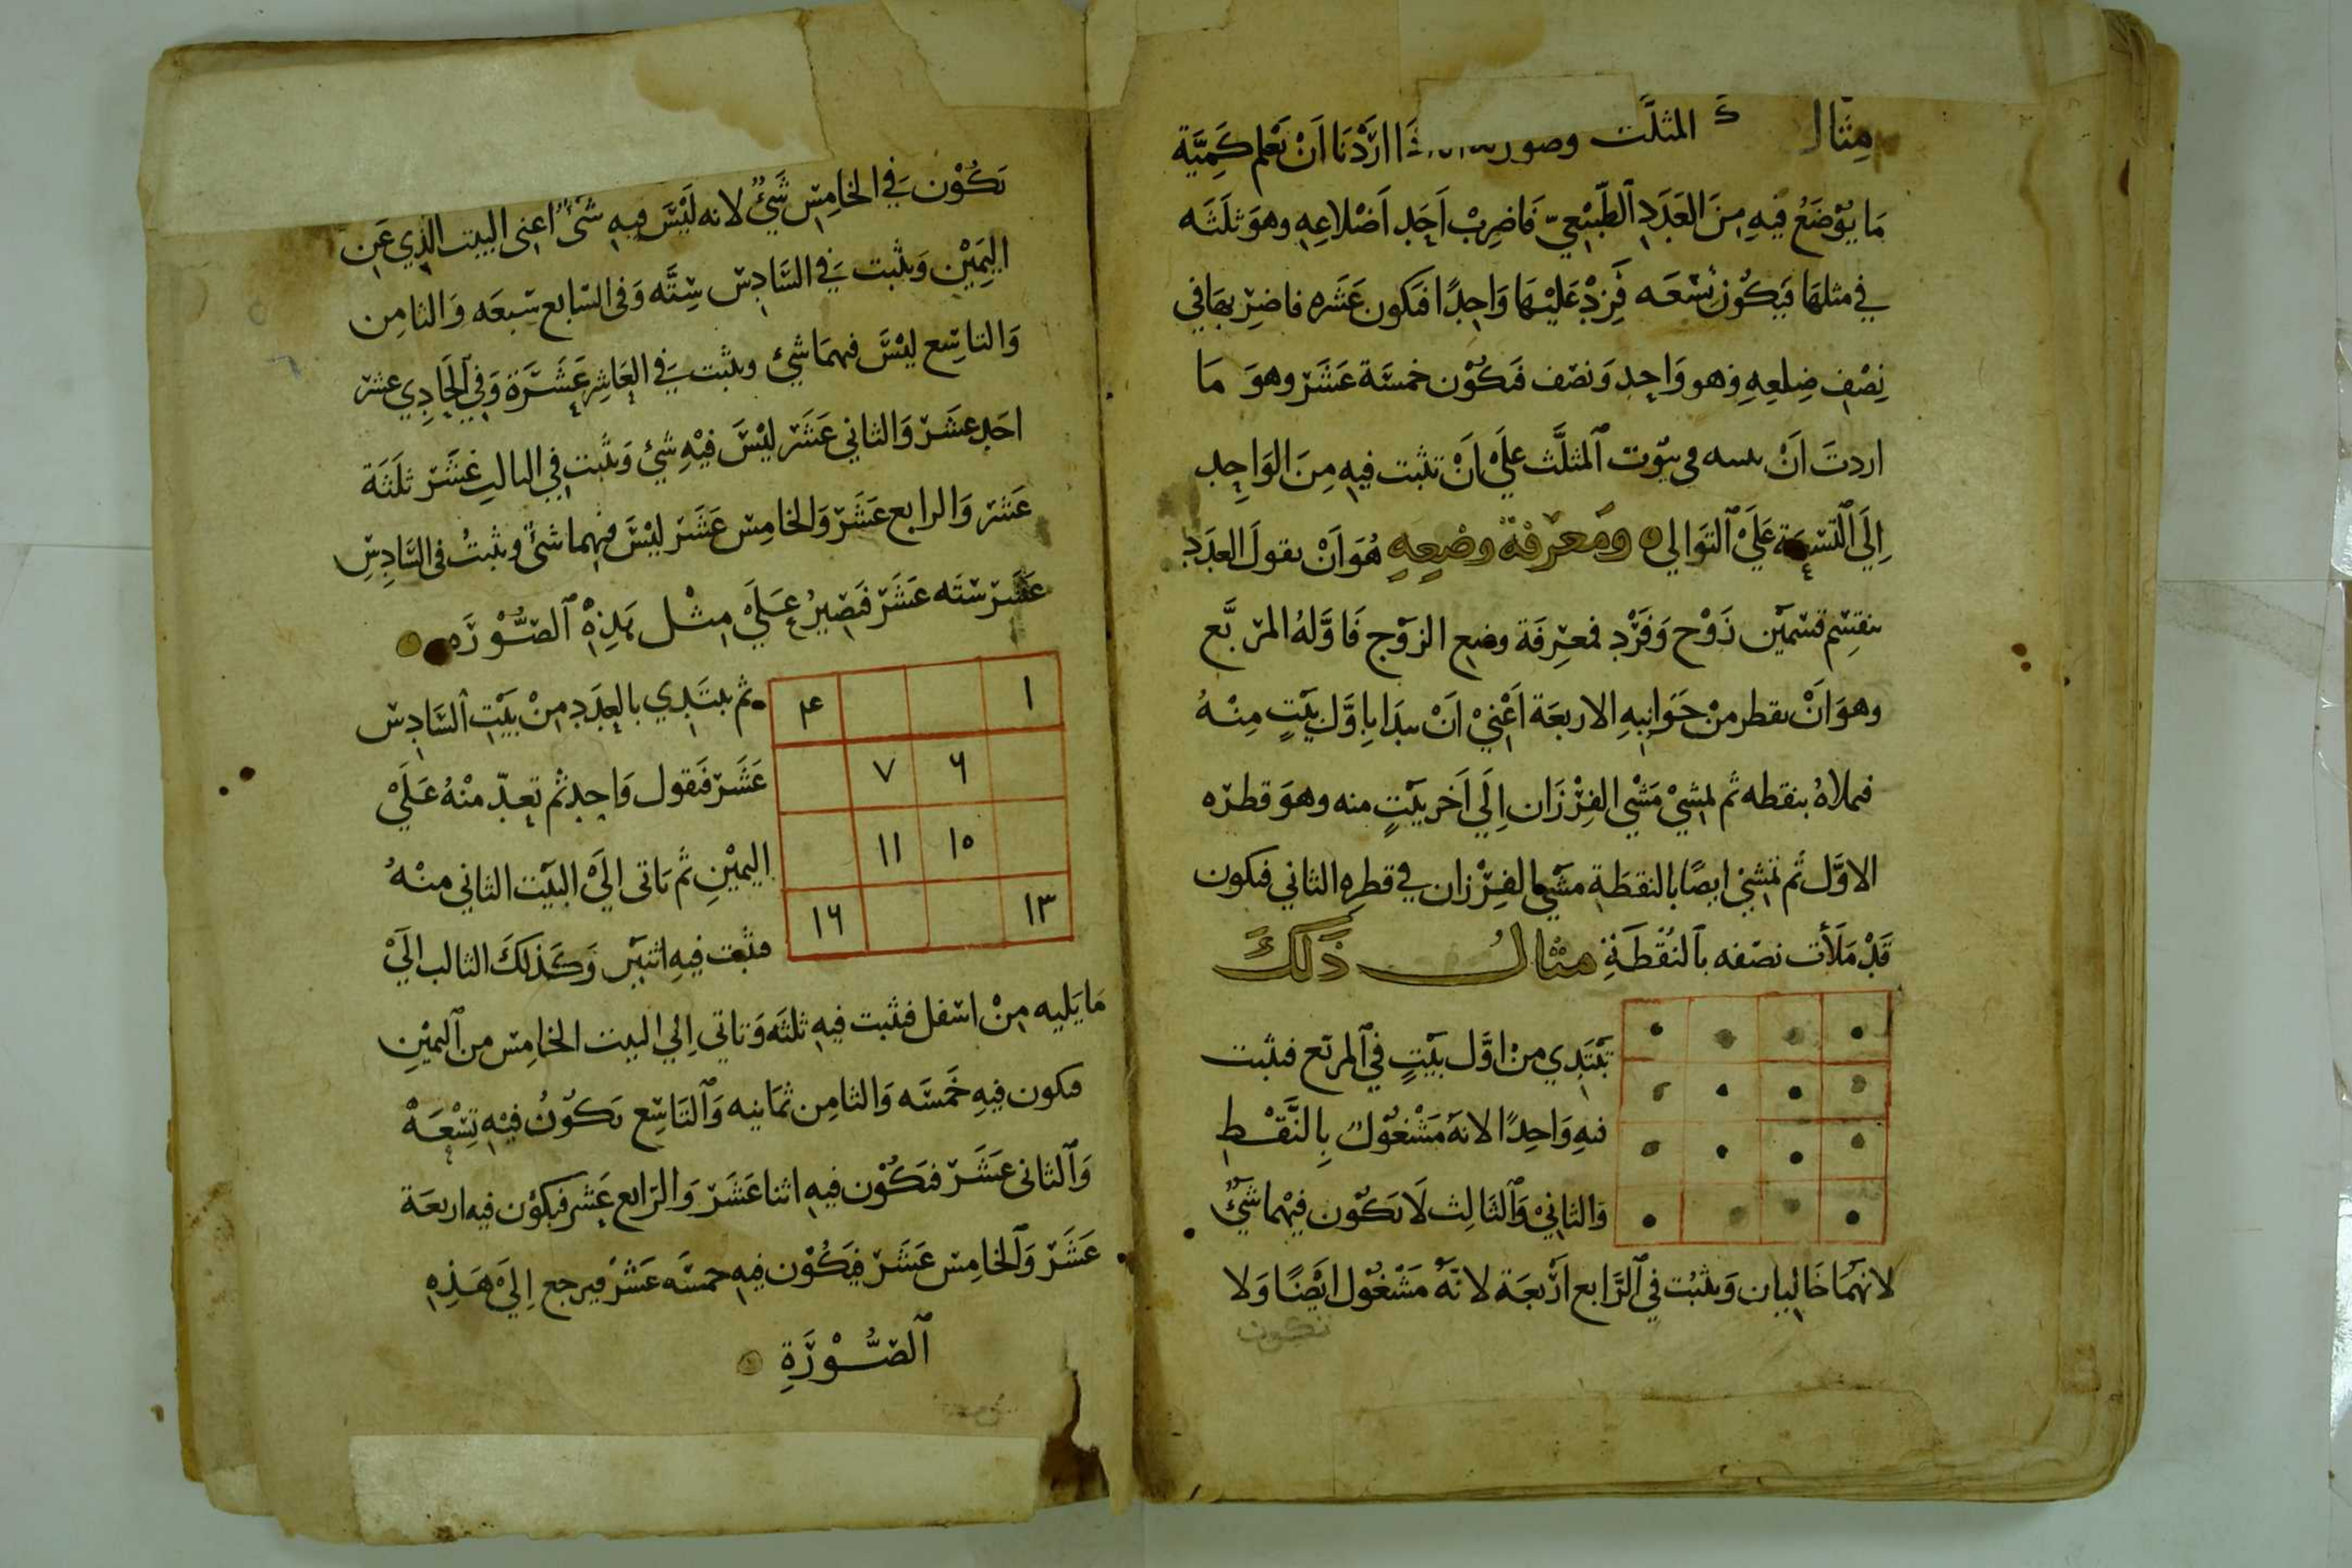 مِثَال المثلَّث وصور اارَدْنَا اَنْ نَعْلم كَمِيَّة
مَا يُوْضَعُ فيْهِ مِنَ العَدَدِ ٱلطَّبِيْعِيّ فَاضِرِبْ اَحَد اَضْلاعِهِ وهوَ ثلَثَه
في مثلهَا فيَكُوْن تِسْعَه فَزِدْ عَلَيْهَا وَاحِدًا فتكون عَشَره فاضرِبهَا في
نِصْف ضِلعِهِ وَهو وَاحِد وَنصْف فتكُوْن خمسَة عَشَر وهوَ مَا
اردتَ اَنْ في بيُوت ٱلمثلَّث عَلَيْ اَنْ تثبت فيهِ مِنَ الوَاحِد
اِلَي ٱلتّسْعَة عَلَيْ ٱلتوَالي ومَعرفة وضْعِهِ هُوَ اَنْ نقولَ العدَد
ينقسِم قسْمَيْن زَوْج وَفَرْد فمعْرِفَة وضع الزوْج فَاوَّلهُ المرَبَّع
وهوَ اَنْ ىقطر منْ جَوَانِبهِ الاربعَة اَعْنِيْ اَنْ يبدَا بِاوَّل بَيْتٍ مِنْهُ
فملاهُ بنقطه ثم مشِيْ مَشْي الفِرْزَان اِلَي اَخر بيْتٍ منه وهوَ قطره
الاوَّل ثم تمشِيْ ايضًا بالنقطَةِ مشْي الفِرْزان في قطرِهِ الثاني فتكون
قَدْ مَلَأت نصْفه بٱلنُقْطَةِ مثال ذَلكَ
تَبْتَدِي من اوَّل بيْتٍ في ٱلمربَّع فتثبت
فيهِ وَاحِدًا لانهُ مَشْغُوْل بِالنَّقْطِ
وَالثاني وَٱلثالِث لَا يَكُوْن فيْهمَا شَيْءٌ
لانهُمَا خَاليان وَيثبُت في ٱلرَّابع اَرْبعَة لانَّهُ مَشْغُوْل ايْضًا وَلا
تكون
يَكُوْن في الخامِس شَيْءٌ لانه لَيْسَ فيهِ شَيْء اعني البيت الذِي عَن
اليَمِيْن وَيثبت في السَّادِس سِتَّه وَفي السَّابع سَبعَه وَالثامِن
وَالتاسِع ليْسَ فيهمَا شيء ويثبت في العَاشِر عَشَرَة وَفي الحَادِي عشر
احَد عشَر وَالثاني عَشَر ليْسَ فيْهِ شَيء وَيثبت في الثالثِ عَشَر ثلَثَة
عَشر وَالرابع عَشَر وَالخامِس عَشَر ليْسَ فيْهما شَيء ويثبتُ في السَّادِسِ
عَشَر ستَه عَشَر فتَصِيرُ عَلَيْ مِثْل هَذِهِ ٱلصُّوْرَه
١ ٤
٦ ٧
١٠ ١١
١٣ ١٦
ثم يبتَدِي بالعدَدِ منْ بَيْتِ السَّادِس
عَشَر فَتقول وَاحِد ثم تعدّ منْهُ عَلَيْ
اليمِيْنِ ثم تاتى اِلَيْ البيْت الثاني منْهُ
فتثبت فيهِ اثنين وَكَذلكَ الثالث اِلَيْ
مَا يَليه منْ اسْفل فتثبت فيهِ ثلثه وَتاتي اِلي البيت الخامِس من ٱليمْينِ
فتكون فيهِ خمَسَه وَالثامِن ثمَانيه وَٱلتاسِع يكُوْنُ فيْهِ تِسْعَةْ
وَٱلثانى عَشَر فتَكُوْن فيه اثنا عَشَر وَالرَابع عَشر فيكُوْن فيه اربعَة
عَشَر وَٱلخامِس عَشَر فيَكُوْن فيهِ خمسَه عَشَر فيرجع اِلَيْ هَذِهِ
ٱلصُّوْرَةِ